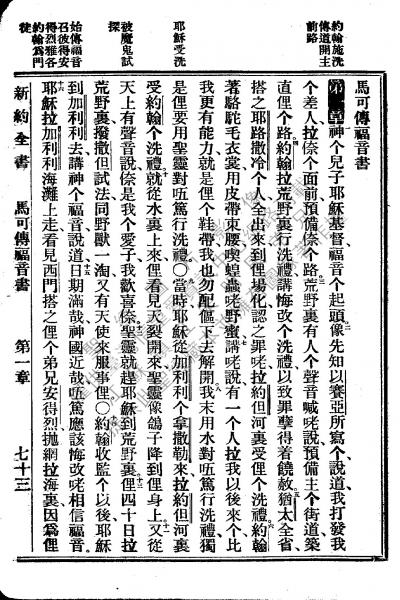 約翰施洗
傳道開主
前路
耶穌受洗
被魔鬼試
探
始傳福音
召彼得安
得烈雅各
約翰爲門
徒
馬可傳福音書
第一章神个兒子耶穌基督福音个起頭像先知以賽亞所寫个說道我打發我
个差人拉倷个面前預備倷个路荒野裏有人个聲音喊咾說預備主个街道築
直俚个路約翰拉荒野裏行洗禮講悔改个洗禮以致罪孽得着饒赦猶太全省
搭之耶路撒冷个人全出來到俚場化認之罪咾拉約但河裏受俚个洗禮約翰
著駱駝毛衣裳用皮帶束腰喫蝗蟲咾野蜜講咾說有一个人拉我以後來个比
我更有能力就是俚个鞋帶我也勿配傴下去解開我末用水對㕶篤行洗禮獨
是俚要用聖靈對㕶篤行洗禮○當時耶穌從加利利个拿撒勒來拉約但河裏
受約翰个洗禮就從水裏上來俚看見天裂開來聖靈像鴿子降到俚身上又從
天上有聲音說倷是我个愛子我歡喜倷聖靈就趕耶穌到荒野裏俚四十日拉
荒野裏撥撒但試法同野獸一淘又有天使來服事俚○約翰收監个以後耶穌
到加利利去講神个福音說道日期滿哉神國近哉㕶篤應該悔改咾相信福音
耶穌拉加利利海灘上走看見西門搭之俚个弟兄安得烈拋網拉海裏因爲俚
新約全書 馬可傳福音書 第一章 七十三